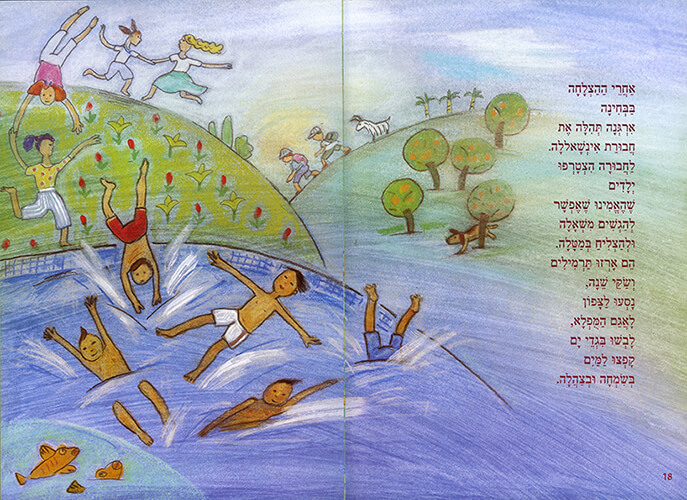 אַחֲרֵי הַהַצְלָחָה
בַּבְּחִינָה
אִרְגְּנָה תְּהִלָּה אֶת
חֲבוּרַת אִינְשָׁאלְלָה.
לַחֲבוּרָה הִצְטָרְפוּ
יְלָדִים
שֶׁהֶאֱמִינוּ שֶׁאֶפְשָׁר
לְהַגְשִׁים מִשְׁאָלָה
וּלְהַצְלִיחַ בְּמַטָּלָה.
הֵם אָרְזוּ תַּרְמִילִים
וְשַׂקֵּי שֵׁנָה,
נָסְעוּ לַצָּפוֹן
לָאֲגַם הַמֻּפְלָא,
לָבְשׁוּ בִּגְדֵי יָם
קָפְצוּ לַמַּיִם
בְּשִׂמְחָה וּבְצָהֳלָה.
18